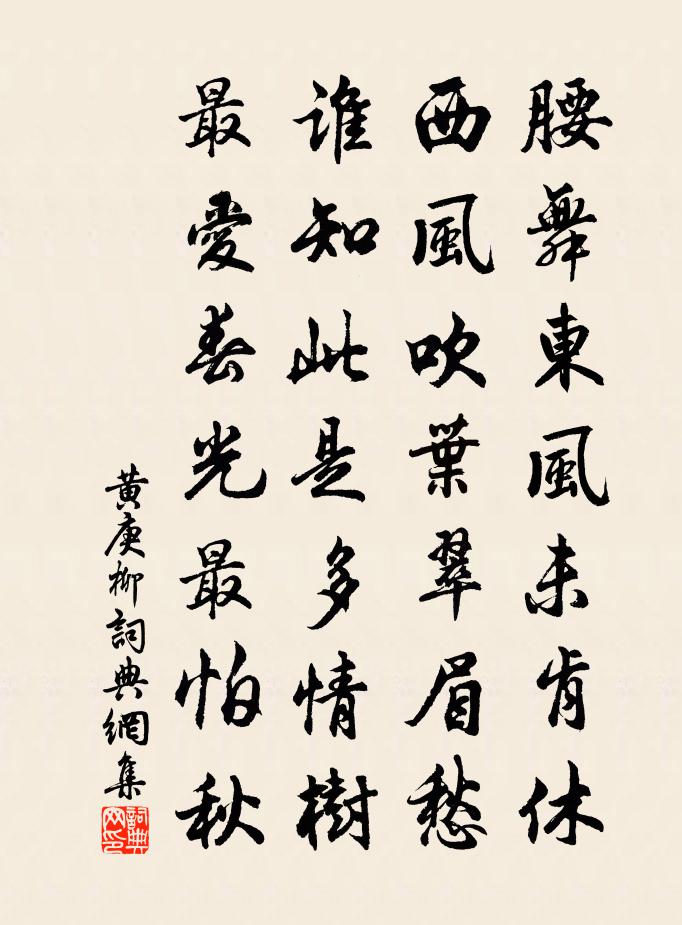 腰舞東風未肯休
西風吹葉翠眉愁
誰知此是多情樹
最愛春光最怕秋
黄庚柳詞典網集
詞典网印